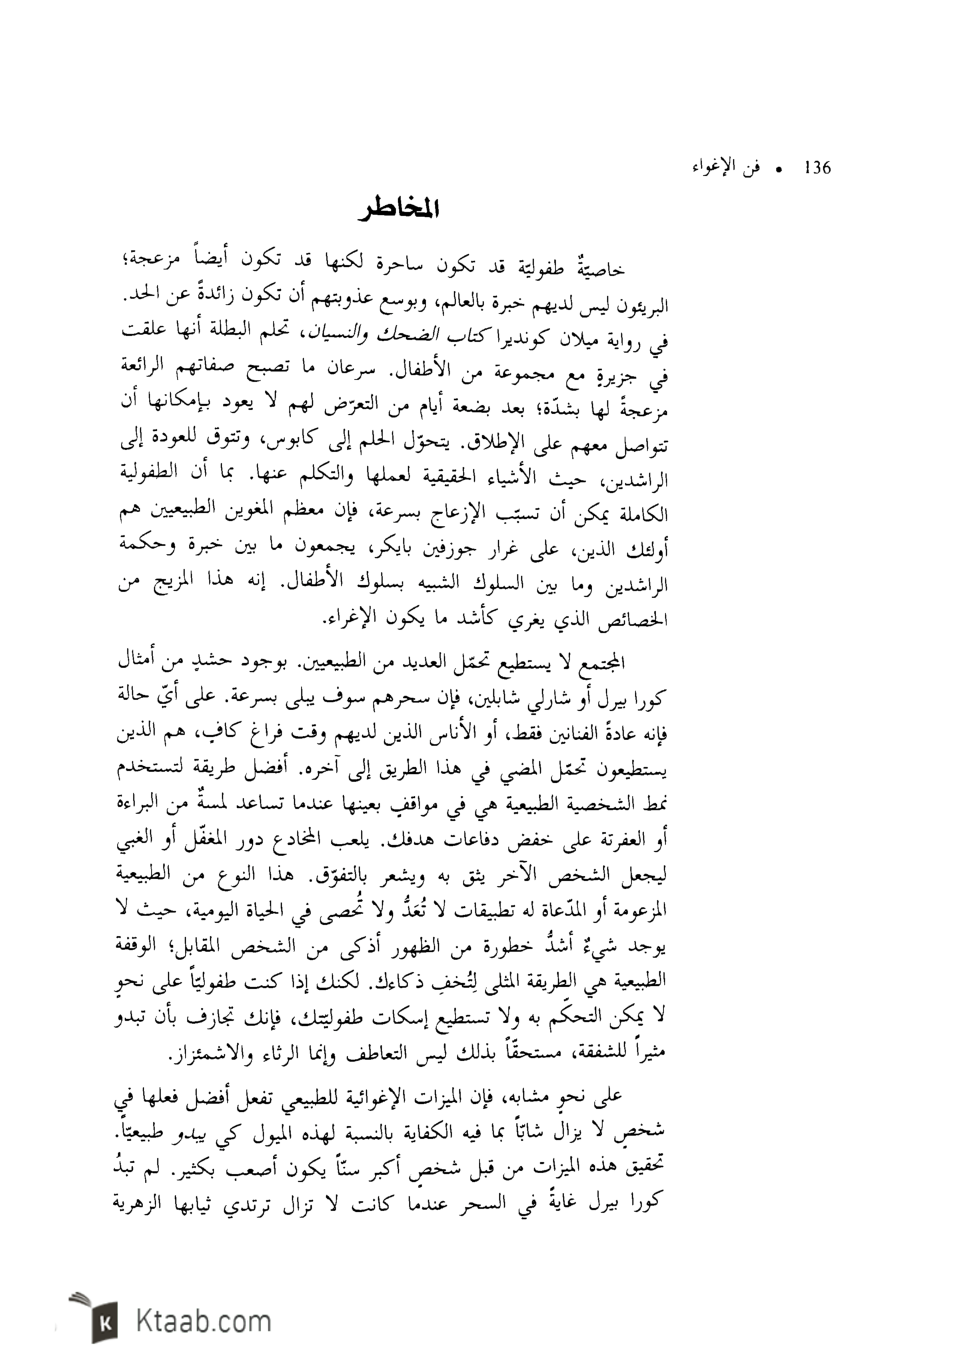 136 • فن الإغواء
المخاطر
خاصيّةٌ طفوليّة قد تكون ساحرة لكنها قد تكون أيضاً مزعجة؛
البريئون ليس لديهم خبرة بالعالم، وبوسع عذوبتهم أن تكون زائدةً عن الحد.
في رواية ميلان كونديرا كتاب الضحك والنسيان، تحلم البطلة أنها علقت
في جزيرةٍ مع مجموعة من الأطفال. سرعان ما تصبح صفاتهم الرائعة
مزعجةً لها بشدّة؛ بعد بضعة أيام من التعرّض لهم لا يعود بإمكانها أن
تتواصل معهم على الإطلاق. يتحوّل الحلم إلى كابوس، وتتوق للعودة إلى
الراشدين، حيث الأشياء الحقيقية لعملها والتكلم عنها. بما أن الطفولية
الكاملة يمكن أن تسبّب الإزعاج بسرعة، فإن معظم المغوين الطبيعيين هم
أولئك الذين، على غرار جوزفين بايكر، يجمعون ما بين خبرة وحكمة
الراشدين وما بين السلوك الشبيه بسلوك الأطفال. إنه هذا المزيج من
الخصائص الذي يغري كأشد ما يكون الإغراء.
المجتمع لا يستطيع تحمّل العديد من الطبيعيين. بوجود حشدٍ من أمثال
كورا بيرل أو شارلي شابلين، فإن سحرهم سوف يبلى بسرعة. على أيّ حالة
فإنه عادةً الفنانين فقط، أو الأناس الذين لديهم وقت فراغ كافٍ، هم الذين
يستطيعون تحمّل المضي في هذا الطريق إلى آخره. أفضل طريقة لتستخدم
نمط الشخصية الطبيعية هي في مواقفٍ بعينها عندما تساعد لمسةٌ من البراءة
أو العفرتة على خفض دفاعات هدفك. يلعب المخادع دور المغفّل أو الغبي
ليجعل الشخص الآخر يثق به ويشعر بالتفوّق. هذا النوع من الطبيعية
المزعومة أو المدّعاة له تطبيقات لا تُعَدُّ ولا تُحصى في الحياة اليومية، حيث لا
يوجد شيءٌ أشدُّ خطورة من الظهور أذكى من الشخص المقابل؛ الوقفة
الطبيعية هي الطريقة المثلى لِتُخفِ ذكاءك. لكنك إذا كنت طفوليّاً على نحوٍ
لا يمكن التحكّم به ولا تستطيع إسكات طفوليّتك، فإنك تجازف بأن تبدو
مثيراً للشفقة، مستحقّاً بذلك ليس التعاطف وإنما الرثاء والاشمئزاز.
على نحوٍ مشابه، فإن الميزات الإغوائية للطبيعي تفعل أفضل فعلها في
شخصٍ لا يزال شابّاً بما فيه الكفاية بالنسبة لهذه الميول كي يبدو طبيعيّاً.
تحقيق هذه الميزات من قبل شخصٍ أكبر سنّاً يكون أصعب بكثير. لم تبدُ
كورا بيرل غايةً في السحر عندما كانت لا تزال ترتدي ثيابها الزهرية
Ktaab.com